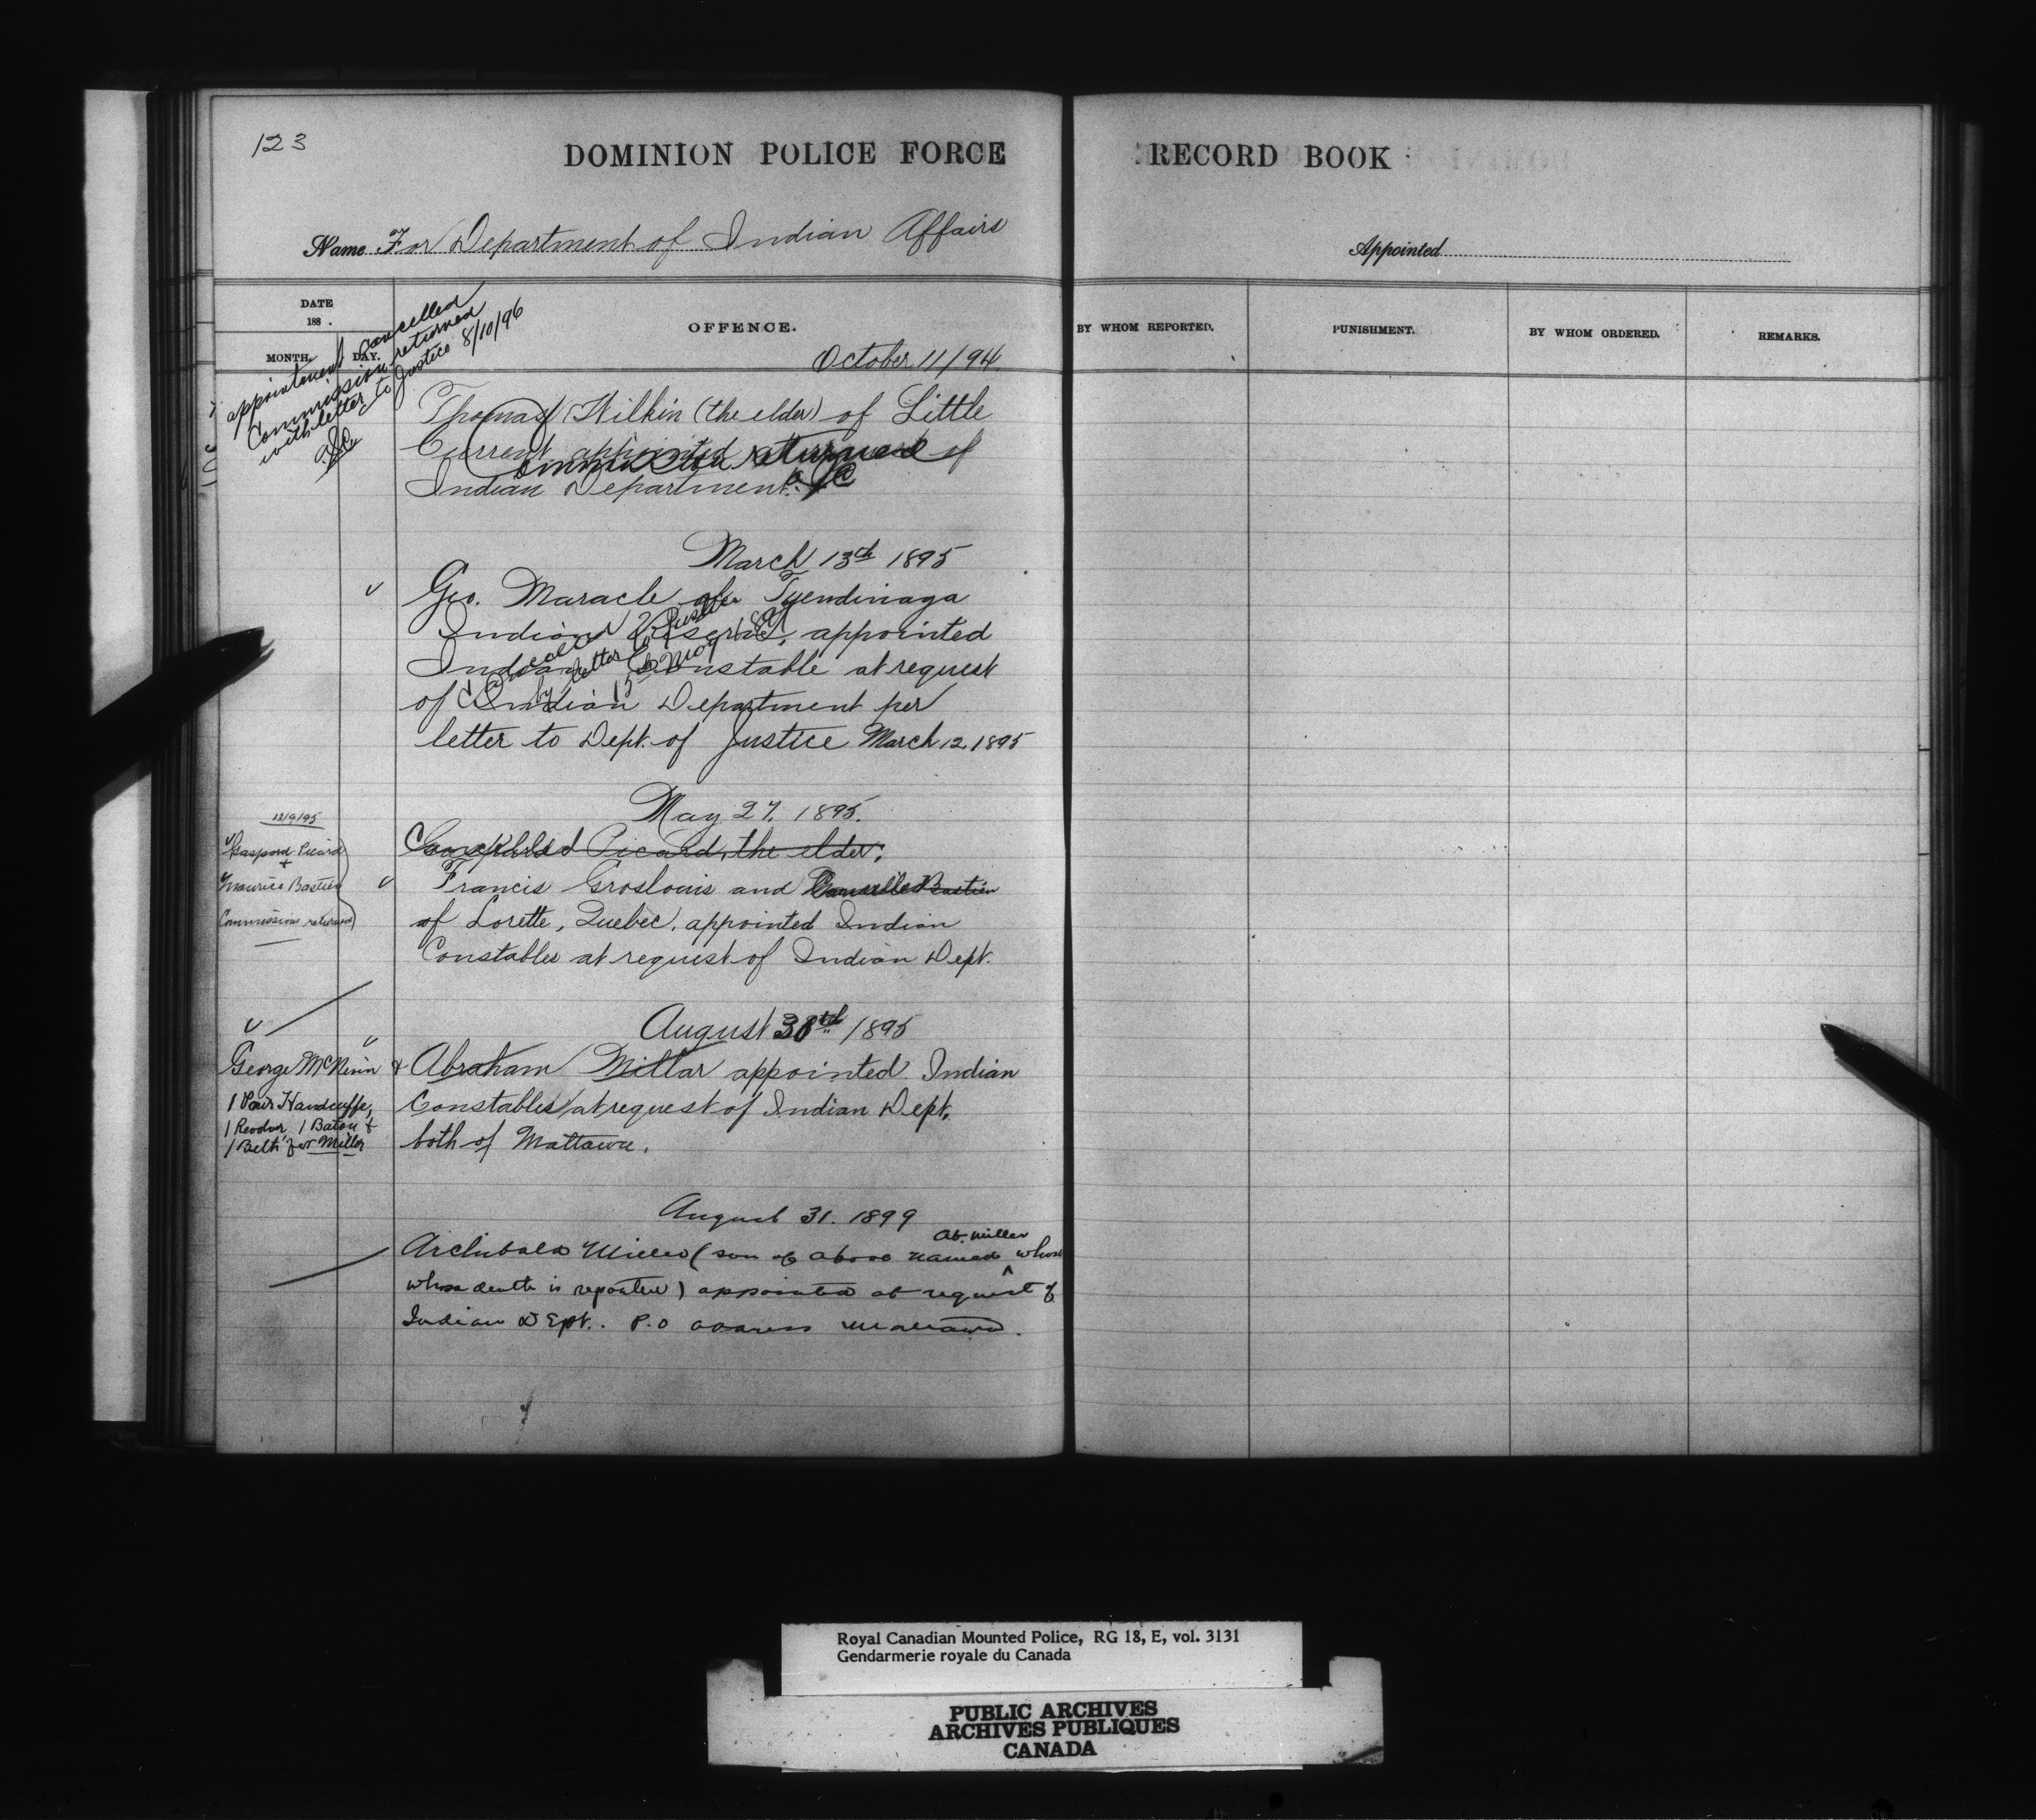 123
DOMINION POLICE FORCE RECORD BOOK
Name For Department of Indian Affairs
Appointed
DATE
188 .
MONTH. DAY.
OFFENCE.
BY WHOM REPORTED.
PUNISHMENT.
BY WHOM ORDERED.
REMARKS.
appointment cancelled
Commission returned
with letter to Justice 8/10/96
October 11/94
Thomas Wilkin (the elder) of Little
Current appointed at request of
Commission returned
Indian Department.
March 13th 1895
Geo. Maracle of Tyendinaga
Indian Reserve, appointed
Indian Constable at request
of Indian Department per
letter to Dept. of Justice March 12, 1895
Cancelled
by letter to Justice
15 May 189
May 27. 1895.
12/9/95
Gaspard Picard
+
Maurice Bastien
Commissions returned
Cancelled Picard, the elder,
Francis Groslouis and Cancelled Bastien
of Lorette, Quebec, appointed Indian
Constables at request of Indian Dept.
August 30th 1895
George McNevin & Abraham Millar appointed Indian
Constables at request of Indian Dept.
both of Mattawa.
1 Pair Handcuffs,
1 Revolver, 1 Baton &
1 Belt for Miller
August 31. 1899
Ab. Miller
Archibald Miller (son of above named whose
whose death is reported) appointed at request of
Indian Dept. P.O address Mattawa.
Royal Canadian Mounted Police, RG 18, E, vol. 3131
Gendarmerie royale du Canada
PUBLIC ARCHIVES
ARCHIVES PUBLIQUES
CANADA